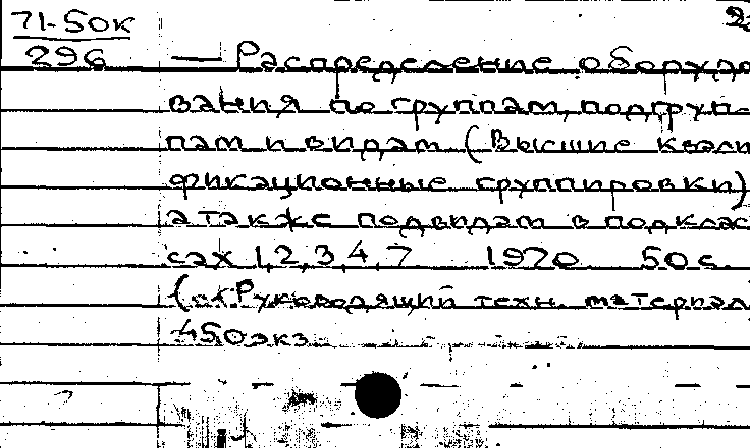 71-50к
296
— Распределение оборудо
вания по группам, подгруп-
пам и видам (Высшие квали
фикационные группировки)
а также подвидам в подклас
сах 1,2,3,4,7 1970 50 с.
(Руководящий техн. материал,
450 экз.